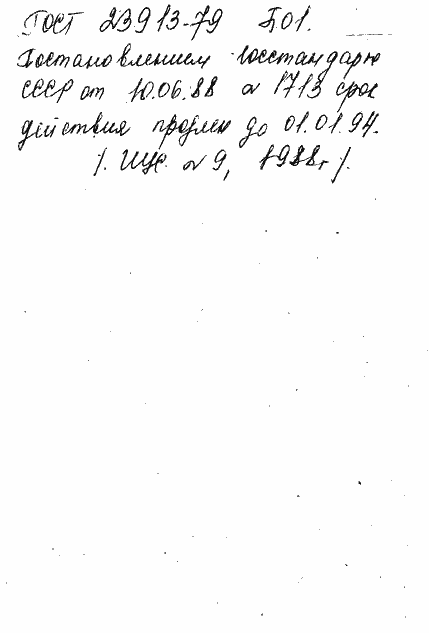 ГОСТ 23913-79 Б01.
Постановлением Госстандарта
СССР от 10.06.88 № 1713 срок
действия продлен до 01.01.94.
/. ИУС № 9, 1988г /.